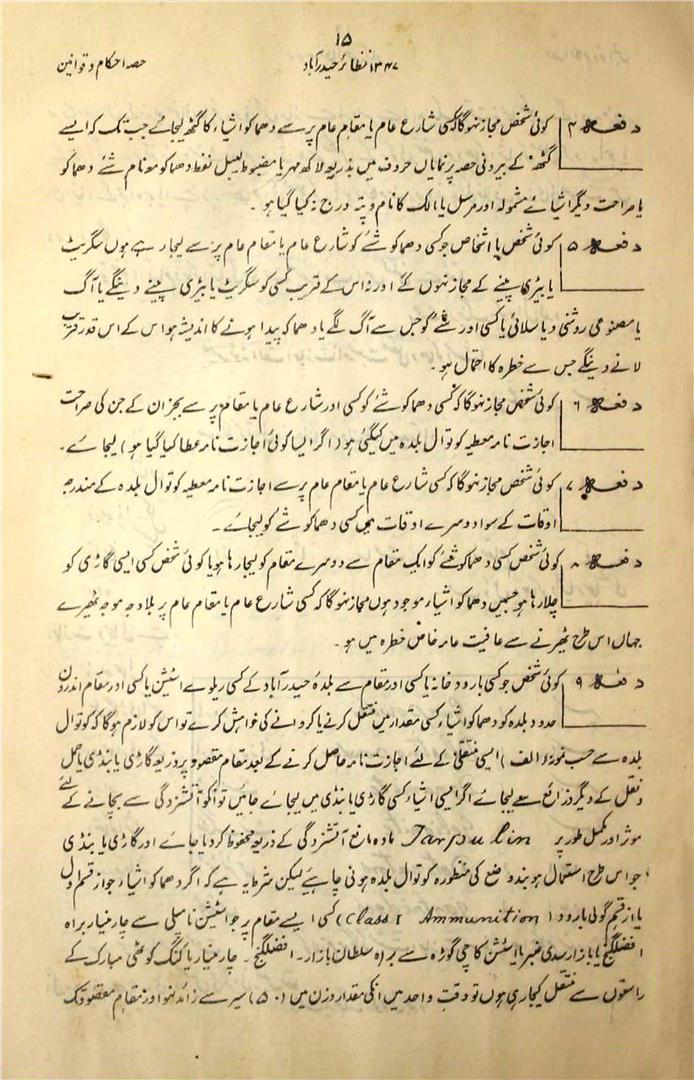 ۱۵
۱۳۴۷ نظائر حیدرآباد حصہ احکام و قوانین
دفعہ ۴ کوئی شخص مجاز نہوگا کہ کسی شارع عام یا مقام عام پر سے دھماکو اشیاء کا گٹھ لیجائے جب تک کہ ایسے
گٹھ کے بیرونی حصہ پر نمایاں حروف میں بذریعہ لاکھ مہر یا مضبوط لیبل لفظ دھماکو مع نام شئے دھماکو
یا صراحت دیگر اشیائے مشمولہ اور مرسل یا مالک کا نام و پتہ درج نہ کیا گیا ہو ۔
دفعہ ۵ کوئی شخص یا اشخاص جو کسی دھماکو شئے کو شارع عام یا مقام عام پر سے لیجا رہے ہوں سگریٹ
یا بیڑی پینے کے مجاز نہوں گے اور نہ اس کے قریب کسی کو سگریٹ یا بیڑی پینے دینگے یا آگ
یا مصنوعی روشنی دیا سلائی یا کسی اور شئے کو جس سے آگ لگے یا دھماکہ پیدا ہونے کا اندیشہ ہو اس کے اس قدر قریب
لانے دینگے جس سے خطرہ کا احتمال ہو ۔
دفعہ ۶ کوئی شخص مجاز نہوگا کہ کسی دھماکو شئے کو کسی اور شارع عام یا مقام پر سے بجز ان کے جن کی صراحت
اجازت نامہ معطیہ کوتوال بلدہ میں کیگئی ہو (اگر ایسا کوئی اجازت نامہ عطا کیا گیا ہو) لیجائے ۔
دفعہ ۷ کوئی شخص مجاز نہوگا کہ کسی شارع عام یا مقام عام پر سے اجازت نامہ معطیہ کوتوال بلدہ کے مندرجہ
اوقات کے سوا دوسرے اوقات میں کسی دھماکو شئے کو لیجائے ۔
دفعہ ۸ کوئی شخص کسی دھماکو شئے کو ایک مقام سے دوسرے مقام کو لیجا رہا ہو یا کوئی شخص کسی ایسی گاڑی کو
چلا رہا ہو جسمیں دھماکو اشیاء موجود ہوں مجاز نہوگا کہ کسی شارع عام یا مقام عام پر بلا وجہ موجہ ٹھیرے
جہاں اس طرح ٹھیرنے سے عافیت عامہ خاص خطرہ میں ہو ۔
دفعہ ۹ کوئی شخص جو کسی بارود خانہ یا کسی اور مقام سے بلدۂ حیدرآباد کے کسی ریلوے اسٹیشن یا کسی اور مقام اندرون
حدود بلدہ کو دھماکو اشیاء کسی مقدار میں منتقل کرنے یا کروانے کی خواہش کرے تو اس کو لازم ہوگا کہ کوتوال
بلدہ سے حسب نمونہ (الف) ایسی منتقلی کے لئے اجازت نامہ حاصل کرنے کے بعد مقام مقصود پر ذریعہ گاڑی یا بنڈی یا حمل
و نقل کے دیگر ذرائع سے لیجائے اگر ایسی اشیاء کسی گاڑی یا بنڈی میں لیجائے جائیں تو انکو آتشزدگی سے بچانے کے لئے
موثر اور مکمل طور پر Tarpoulin مادہ مانع آتشزدگی کے ذریعہ محفوظ کر دیا جائے اور گاڑی یا بنڈی
جو اس طرح استعمال ہو بند وضع کی منظورہ کوتوال بلدہ ہونی چاہیئے لیکن شرط یہ ہے کہ اگر دھماکو اشیاء جو از قسم اول
یا از قسم گولی بارود (Class I Ammunition) کسی ایسے مقام پر جو اسٹیشن نامپلی سے چار مینار براہ
افضلگنج یا بازار سدی عنبر یا اسٹیشن کاچی گوڑہ سے براہ سلطان بازار ۔ افضلگنج ۔ چار مینار یا کنگ کوٹھی مبارک کے
راستوں سے منتقل کیجا رہی ہوں تو وقت واحد میں انکی مقدار وزن میں (۵۰) سیر سے زائد نہو اور مقام مقصود تک